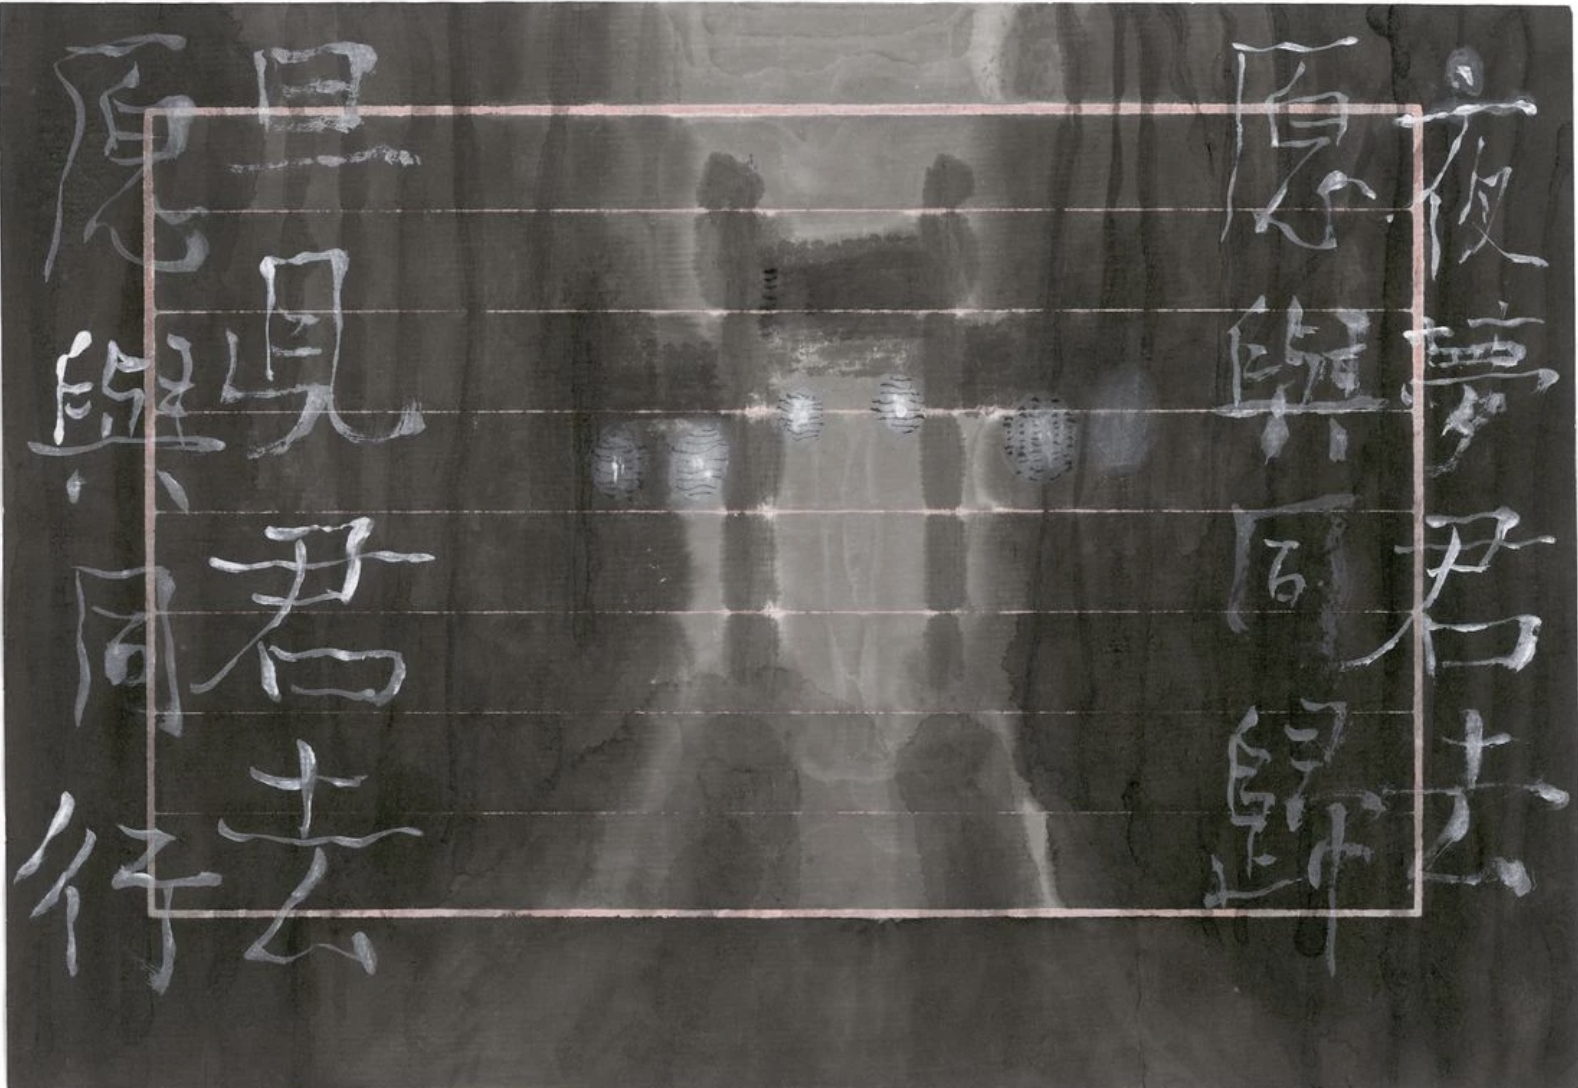 夜夢君去
愿與同歸
旦見君去
愿與同行